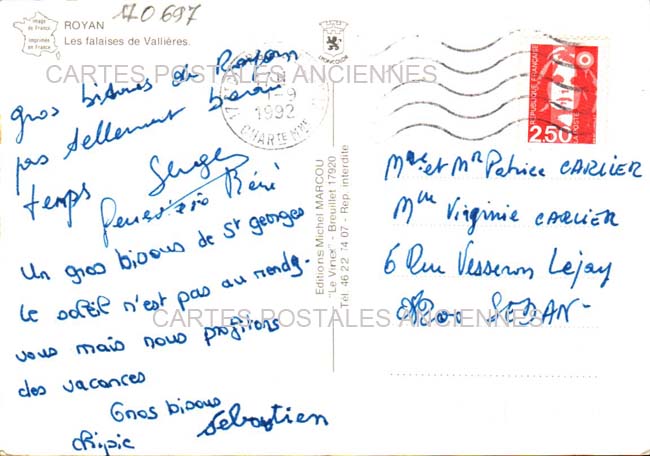 170697
image de France
imprimée en France
ROYAN
Les falaises de Vallières.
CARTES POSTALES ANCIENNES
gros bisous de Royan
pas tellement beau
temps Serge
René
Un gros bisous de St georges
le soleil n'est pas au rendez-
vous mais nous profitons
des vacances
Gros bisous
chipie Sébastien
-9
1992
CHARTE MME
Editions Michel MARCOU
"Le Vimer" - Breuillet 17920
Tél 46 22 74 07 - Rep. interdite
REPUBLIQUE FRANÇAISE
LA POSTE
2,50
Mme et Mr Patrice CARLIER
Mlle Virginie CARLIER
6 Rue Vesseron Lejay
SEDAN-
CARTES POSTALES ANCIENNES